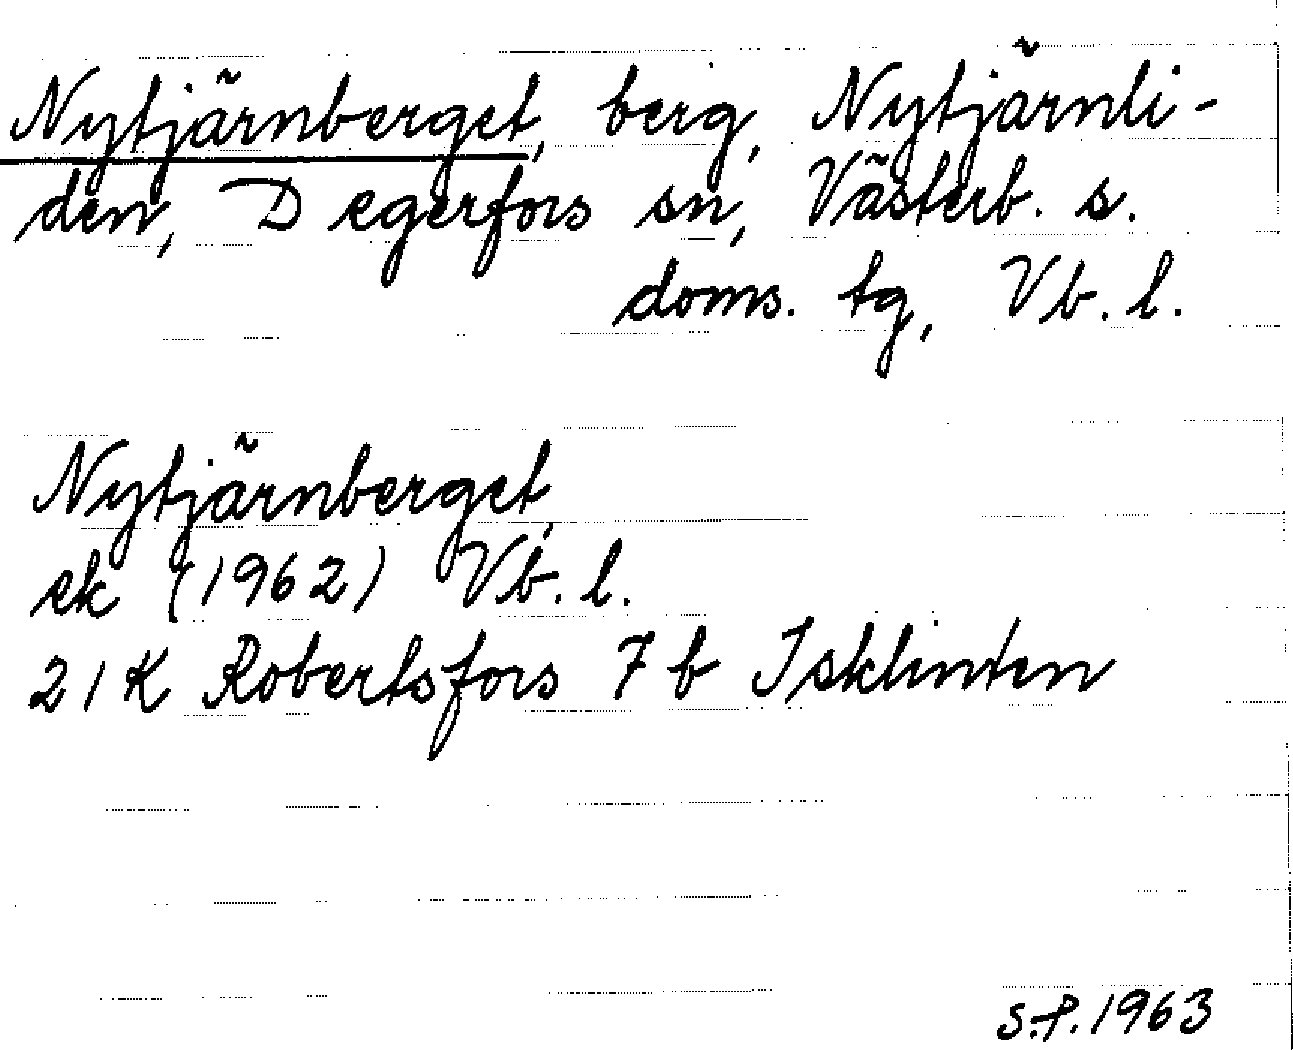 Nytjärnberget, berg, Nytjärnli-
den, Degerfors sn, Västerb. s.
doms. tg, Vb. l.
Nytjärnberget,
ek (1962) Vb. l.
21K Robertsfors 7 b Isklinten
S.P. 1963